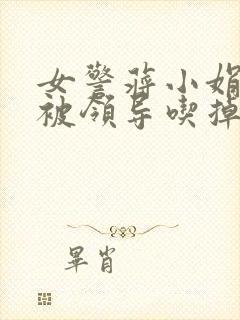 女警蒋小娟
被领导喫掉
畢肖